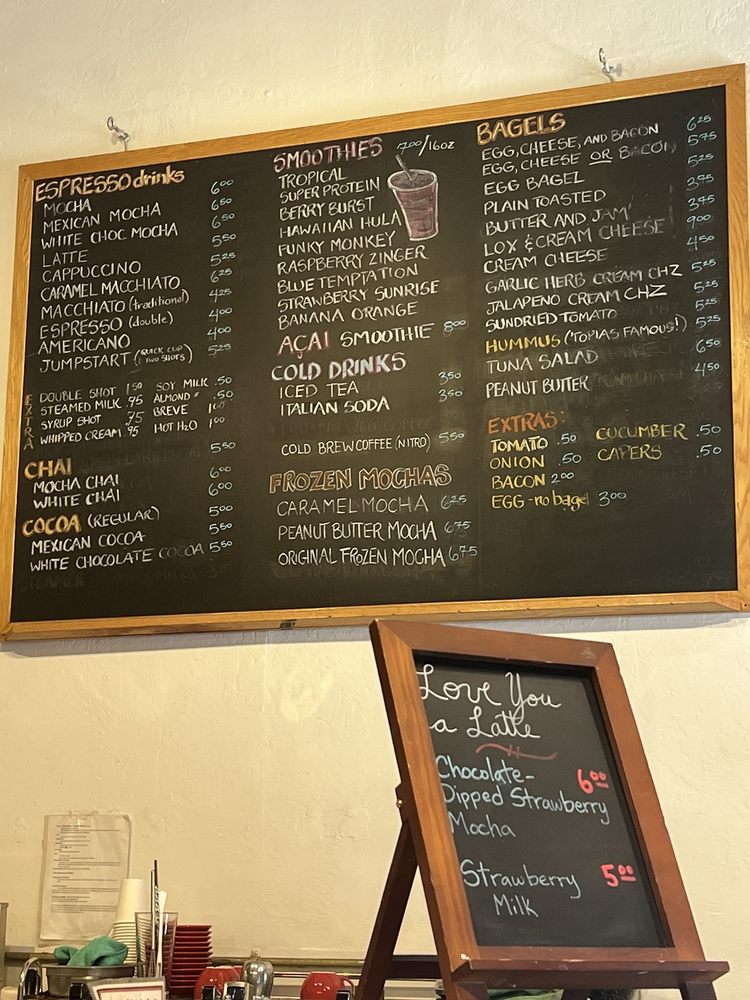 ESPRESSO drinks
MOCHA 6.00
MEXICAN MOCHA 6.50
WHITE CHOC MOCHA 6.50
LATTE 5.50
CAPPUCCINO 5.25
CARAMEL MACCHIATO 6.25
MACCHIATO (traditional) 4.25
ESPRESSO (double) 4.00
AMERICANO 4.00
JUMPSTART (QUICK CUP TWO SHOTS) 5.25
EXTRA
DOUBLE SHOT 1.50 SOY MILK .50
STEAMED MILK .95 ALMOND " .50
SYRUP SHOT .75 BREVE 1.00
WHIPPED CREAM .95 HOT H2O 1.00
CHAI 5.50
MOCHA CHAI 6.00
WHITE CHAI 6.00
COCOA (REGULAR) 5.00
MEXICAN COCOA 5.50
WHITE CHOCOLATE COCOA 5.50
SMOOTHIES 7.00/16OZ
TROPICAL
SUPER PROTEIN
BERRY BURST
HAWAIIAN HULA
FUNKY MONKEY
RASPBERRY ZINGER
BLUE TEMPTATION
STRAWBERRY SUNRISE
BANANA ORANGE
AÇAI SMOOTHIE 8.00
COLD DRINKS
ICED TEA 3.50
ITALIAN SODA 3.50
COLD BREW COFFEE (NITRO) 5.50
FROZEN MOCHAS
CARAMEL MOCHA 6.25
PEANUT BUTTER MOCHA 6.75
ORIGINAL FROZEN MOCHA 6.75
BAGELS
EGG, CHEESE, AND BACON 6.25
EGG, CHEESE OR BACON 5.75
EGG BAGEL 5.25
PLAIN TOASTED 3.75
BUTTER AND JAM 3.95
LOX & CREAM CHEESE 9.00
CREAM CHEESE 4.50
GARLIC HERB CREAM CHZ 5.25
JALAPENO CREAM CHZ 5.25
SUNDRIED TOMATO 5.25
HUMMUS (TOPIAS FAMOUS!) 5.25
TUNA SALAD 6.50
PEANUT BUTTER 4.50
EXTRAS:
TOMATO .50 CUCUMBER .50
ONION .50 CAPERS .50
BACON 2.00
EGG - no bagel 3.00
Love You
a Latte
Chocolate- 6.00
Dipped Strawberry
Mocha
Strawberry 5.00
Milk